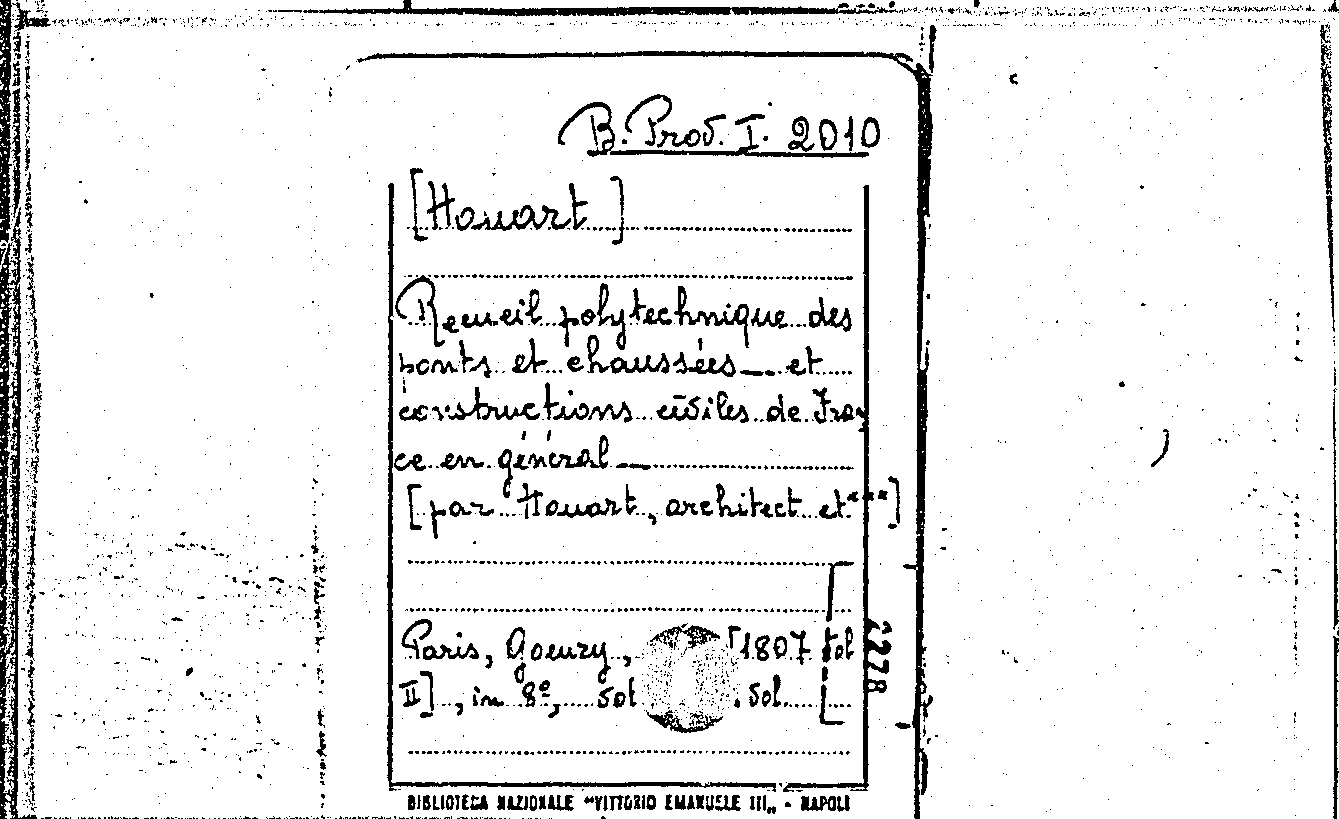 B. Prov. I. 2010
[Houart]
Recueil polytechnique des
ponts et chaussées — et
constructions civiles de Fran
ce en général —
[par Houart, architect et ***]
Paris, Goeury, [1807 tol
II], in 8º, sol . sol.
2278
BIBLIOTECA NAZIONALE "VITTORIO EMANUELE III„ - NAPOLI